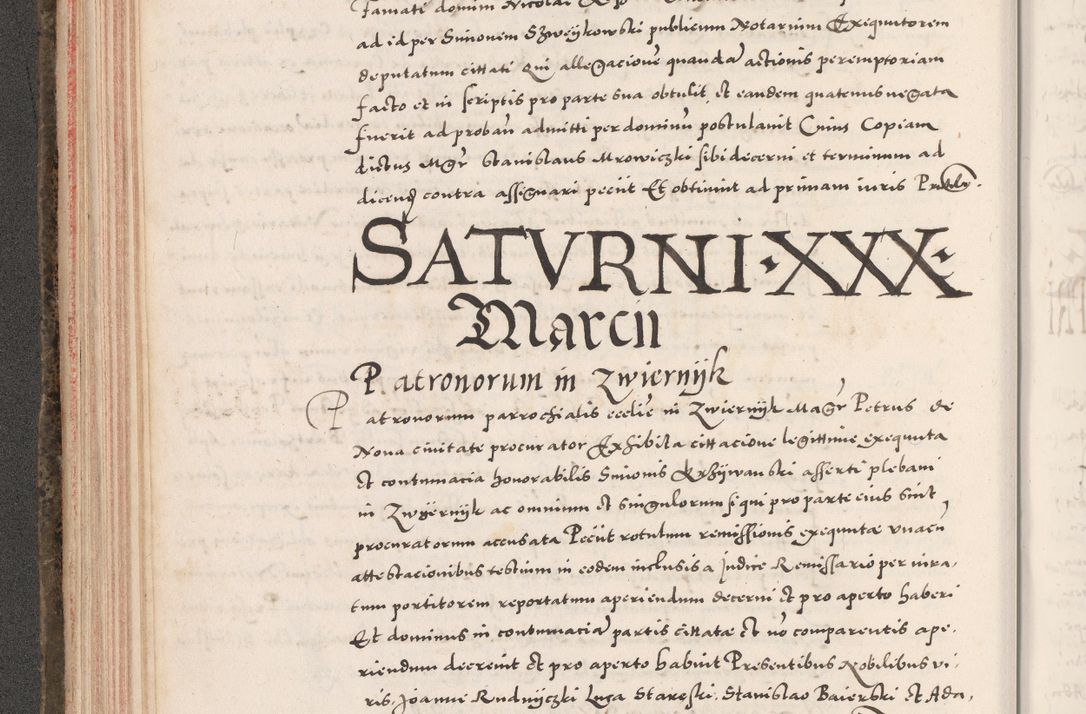 Famati domini Nicolai
ad id per Simonem Szweykowski publicum Notarium Exequutorem
deputatum cittati Qui allegacione quanda actionis peremptoriam
facto et in scriptis pro parte sua obtulit, Et eandem quatenus negata
fuerit ad proban admitti per dominu postulavit Cuius Copiam
dictus Mgr Stanislaus Mrowiczki sibi decerni et terminum ad
dicend contra assignari peciit Et obtinuit ad primam iuris
SATVRNI·XXX·
Marcii
Patronorum in Zwiernijk
Patronorum parrochialis ecclie in Zwiernijk Magr Petrus de
Nova civitate procurator Exhibita cittacione legittime exequuta
Et contumacia honorabilis Simonis Krzijwanski asserti plebani
in Zwijernijk ac omnium Et singulorum si qui pro parte eius sint
procuratorum accusata Peciit rotulum remissionis exequutae vnacu
attestacionibus testium in eodem inclusis a Judice Remissario per iura-
tum portitorem reportatum aperiendum decerni Et pro aperto haberi
Et dominus in contumacia partis cittatae Et no comparentis ape-
riendum decrevit Et pro aperto habuit Presentibus Nobilibus vi-
ris, Joanne Rudnijczki Luca Stareski, Stanislao Baierski Et Ada,